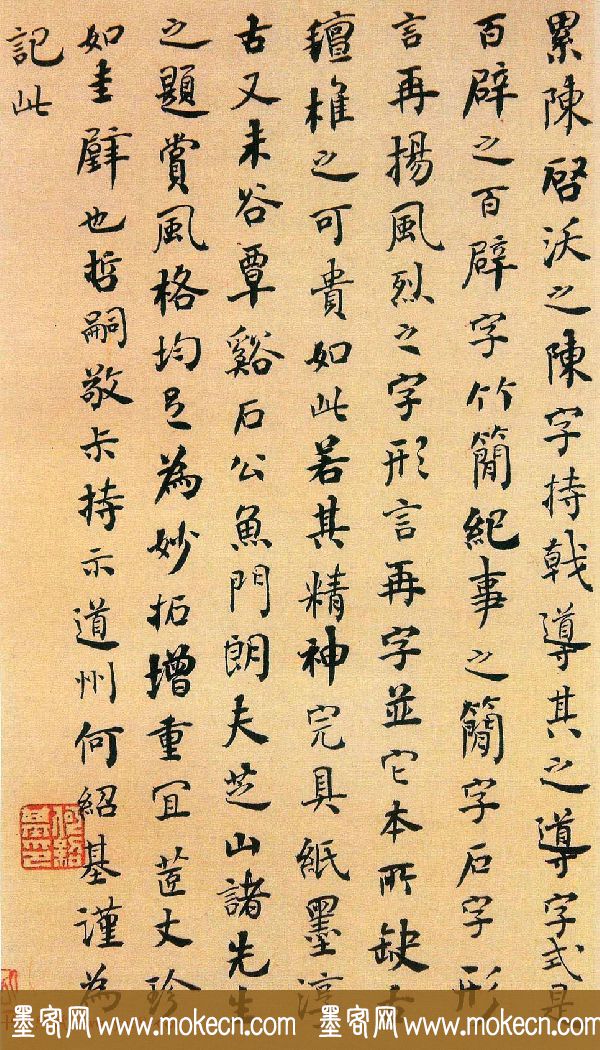 累陳啓沃之陳字持戟導其之導字式是
百辟之百辟字竹簡紀事之簡字石字形
言再揚風烈之字形言再字並它本所缺
椎之可貴如此若其精神完具紙墨淳
古又未谷覃谿石公魚門朗夫芝山諸先生
之題賞風格均足為妙拓增重宜芷丈珍
如圭璧也哲嗣敬持示道州何紹基謹為
記此
墨客网 www.mokecn.com 墨客网 www.mokecn.com 墨客网 www.mokecn.com